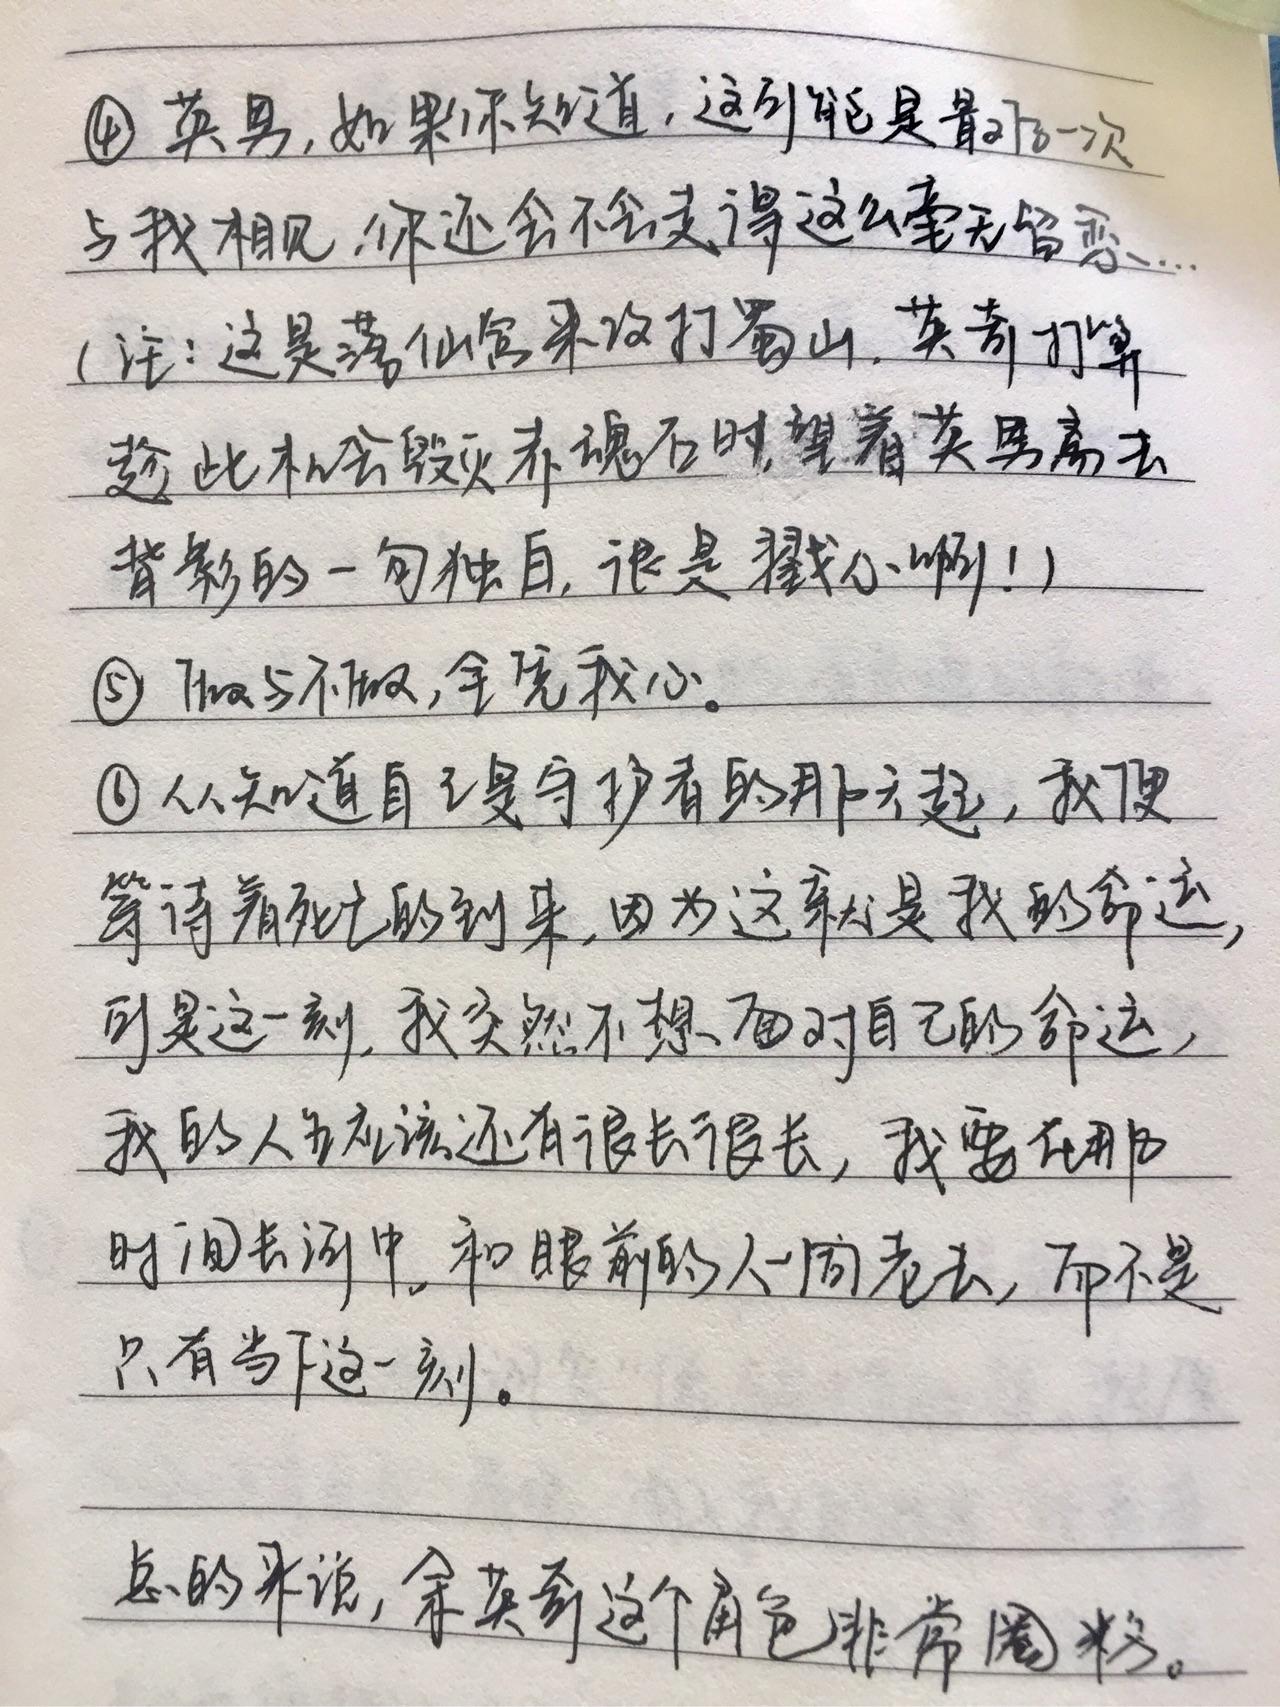 ④ 英男,如果你知道,这可能是最后一次
与我相见,你还会不会走得这么毫无留恋……
(注:这是落仙宫来攻打蜀山,英奇打算
趁此机会毁灭赤魂石时,望着英男离去
背影的一句独白,很是戳心啊!)
⑤ 做与不做,全凭我心。
⑥ 从知道自己是守护者的那天起,我便
等待着死亡的到来,因为这就是我的命运,
可是这一刻,我突然不想面对自己的命运,
我的人生应该还有很长很长,我要在那
时间长河中,和眼前的人一同老去,而不是
只有当下这一刻。
总的来说,余英奇这个角色非常圈粉。